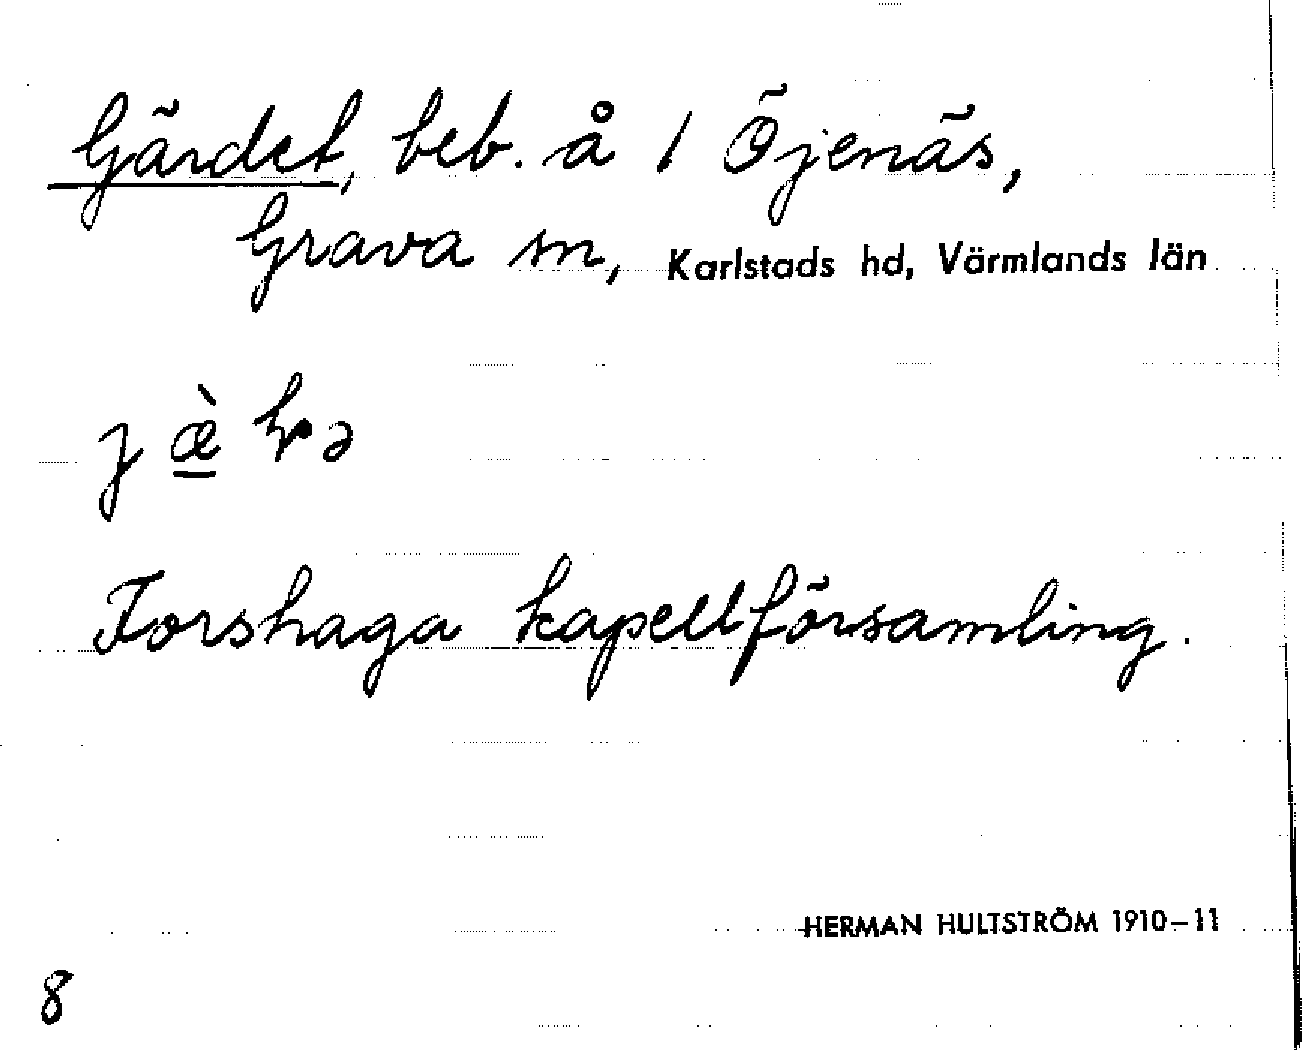 Gärdet, beb. å 1 Öjenäs,
Grava sn, Karlstads hd, Värmlands län
Forshaga kapellförsamling.
HERMAN HULTSTRÖM 1910-11
8